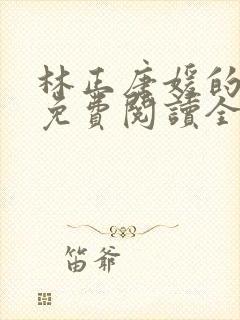 林正唐媛的
免費閱讀全
笛爺